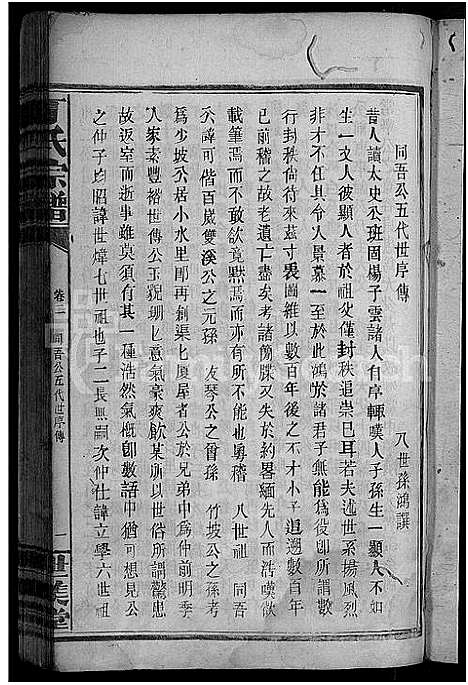 同吾公五代世序傳
八世孫鴻譔
昔人讀太史公班固楊子雲諸人自序輒嘆人子孫生一顯人不如
生一文人彼顯人者於祖父僅封秩追崇已耳若夫述世系揚風烈
非不才任其令人景慕一至此鴻於諸君子無能為役卽所謂數
行封秩倘待來茲寸裘圖維以數百年後之不才小子追遡數百年
之前稽之故老遺亡盡矣考諸簡牒又失於約畧緬先人而浩嘆欲
載筆焉而不敢欲竟默焉而亦不能也勇稽八世祖同吾
公諱可偕百歲雙溪公之元孫友琴公之曾孫竹坡公之孫考
為少坡公居小水里即再創渠乚厦屋者公於兄弟中為仲前明季
人家素豐裕世傳公玉貌珊乚意氣豪爽飲某所以世俗所謂驚忠
故返室而逝事雖莫須有其一種浩然氣概卽數語中猶可想見公
之仲子均昭諱世煒七世祖也子二長無嗣次仲仕諱立學六世祖
氏宗譜
卷二
同吾公五代世序傳
一